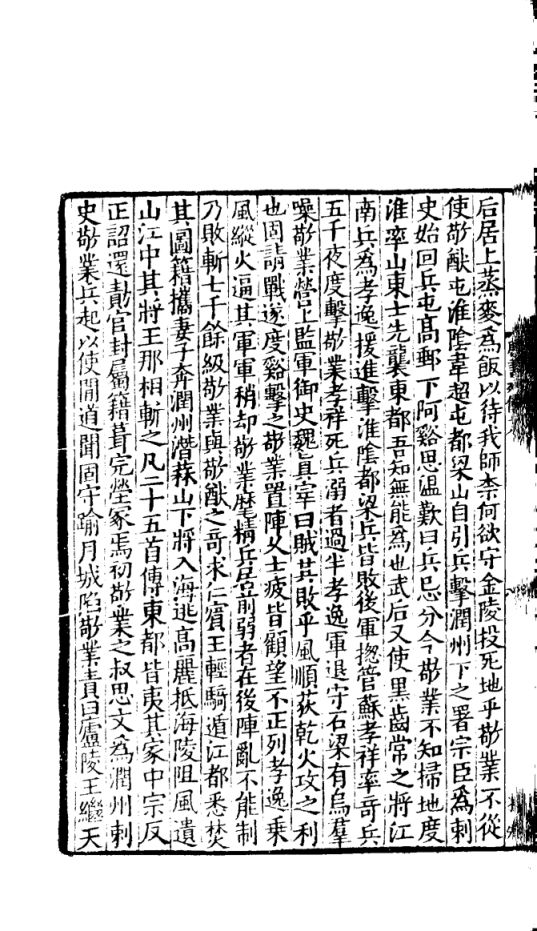 后居上蒸麥爲飯以待我師柰何欲守金陵投死地乎敬業不從
使敬猷屯淮陰韋超屯都梁山自引兵擊潤州下之署宗臣爲刺
史始回兵屯髙郵下阿谿思温歎曰兵忌分今敬業不知掃地度
淮率山東士先襲東都吾知無能爲也武后又使黑齒常之將江
南兵爲孝逸援進擊淮陰都梁兵皆敗後軍揔管蘇孝祥率竒兵
五千夜度擊敬業孝祥死兵溺者過半孝逸軍退守石梁有烏羣
噪敬業營上監軍御史魏真宰曰賊其敗乎風順荻乾火攻之利
也固請戰遂度谿擊之敬業置陣乆士疲皆顧望不正列孝逸乗
風縱火逼其軍軍稍却敬業麾精兵居前弱者在後陣亂不能制
乃敗斬七千餘級敬業與敬猷之竒求仁賓王輕騎遁江都悉焚
其圖籍攜妻子奔潤州潛蒜山下將入海逃髙麗抵海陵阻風遺
山江中其將王那相斬之凡二十五首傳東都皆夷其家中宗反
正詔還勣官封屬籍葺完塋冢焉初敬業之叔思文爲潤州刺
史敬業兵起以使間道聞固守踰月城陷敬業責曰廬陵王繼天